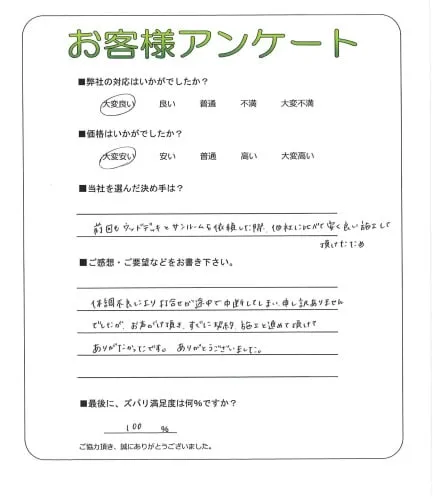 お客様アンケート
■弊社の対応はいかがでしたか？
大変良い 良い 普通 不満 大変不満
■価格はいかがでしたか？
大変安い 安い 普通 高い 大変高い
■当社を選んだ決め手は？
前回もウッドデッキとサンルームを依頼した際、他社に比べて安く良い施工して
頂けたため
■ご感想・ご要望などをお書き下さい。
体調不良により打合せが途中で中断してしまい申し訳ありません
でしたが、お声がけ頂き、すぐに契約、施工と進めて頂けて
ありがたかったです。ありがとうございました。
■最後に、ズバリ満足度は何%ですか？
100 %
ご協力頂き、誠にありがとうございました。